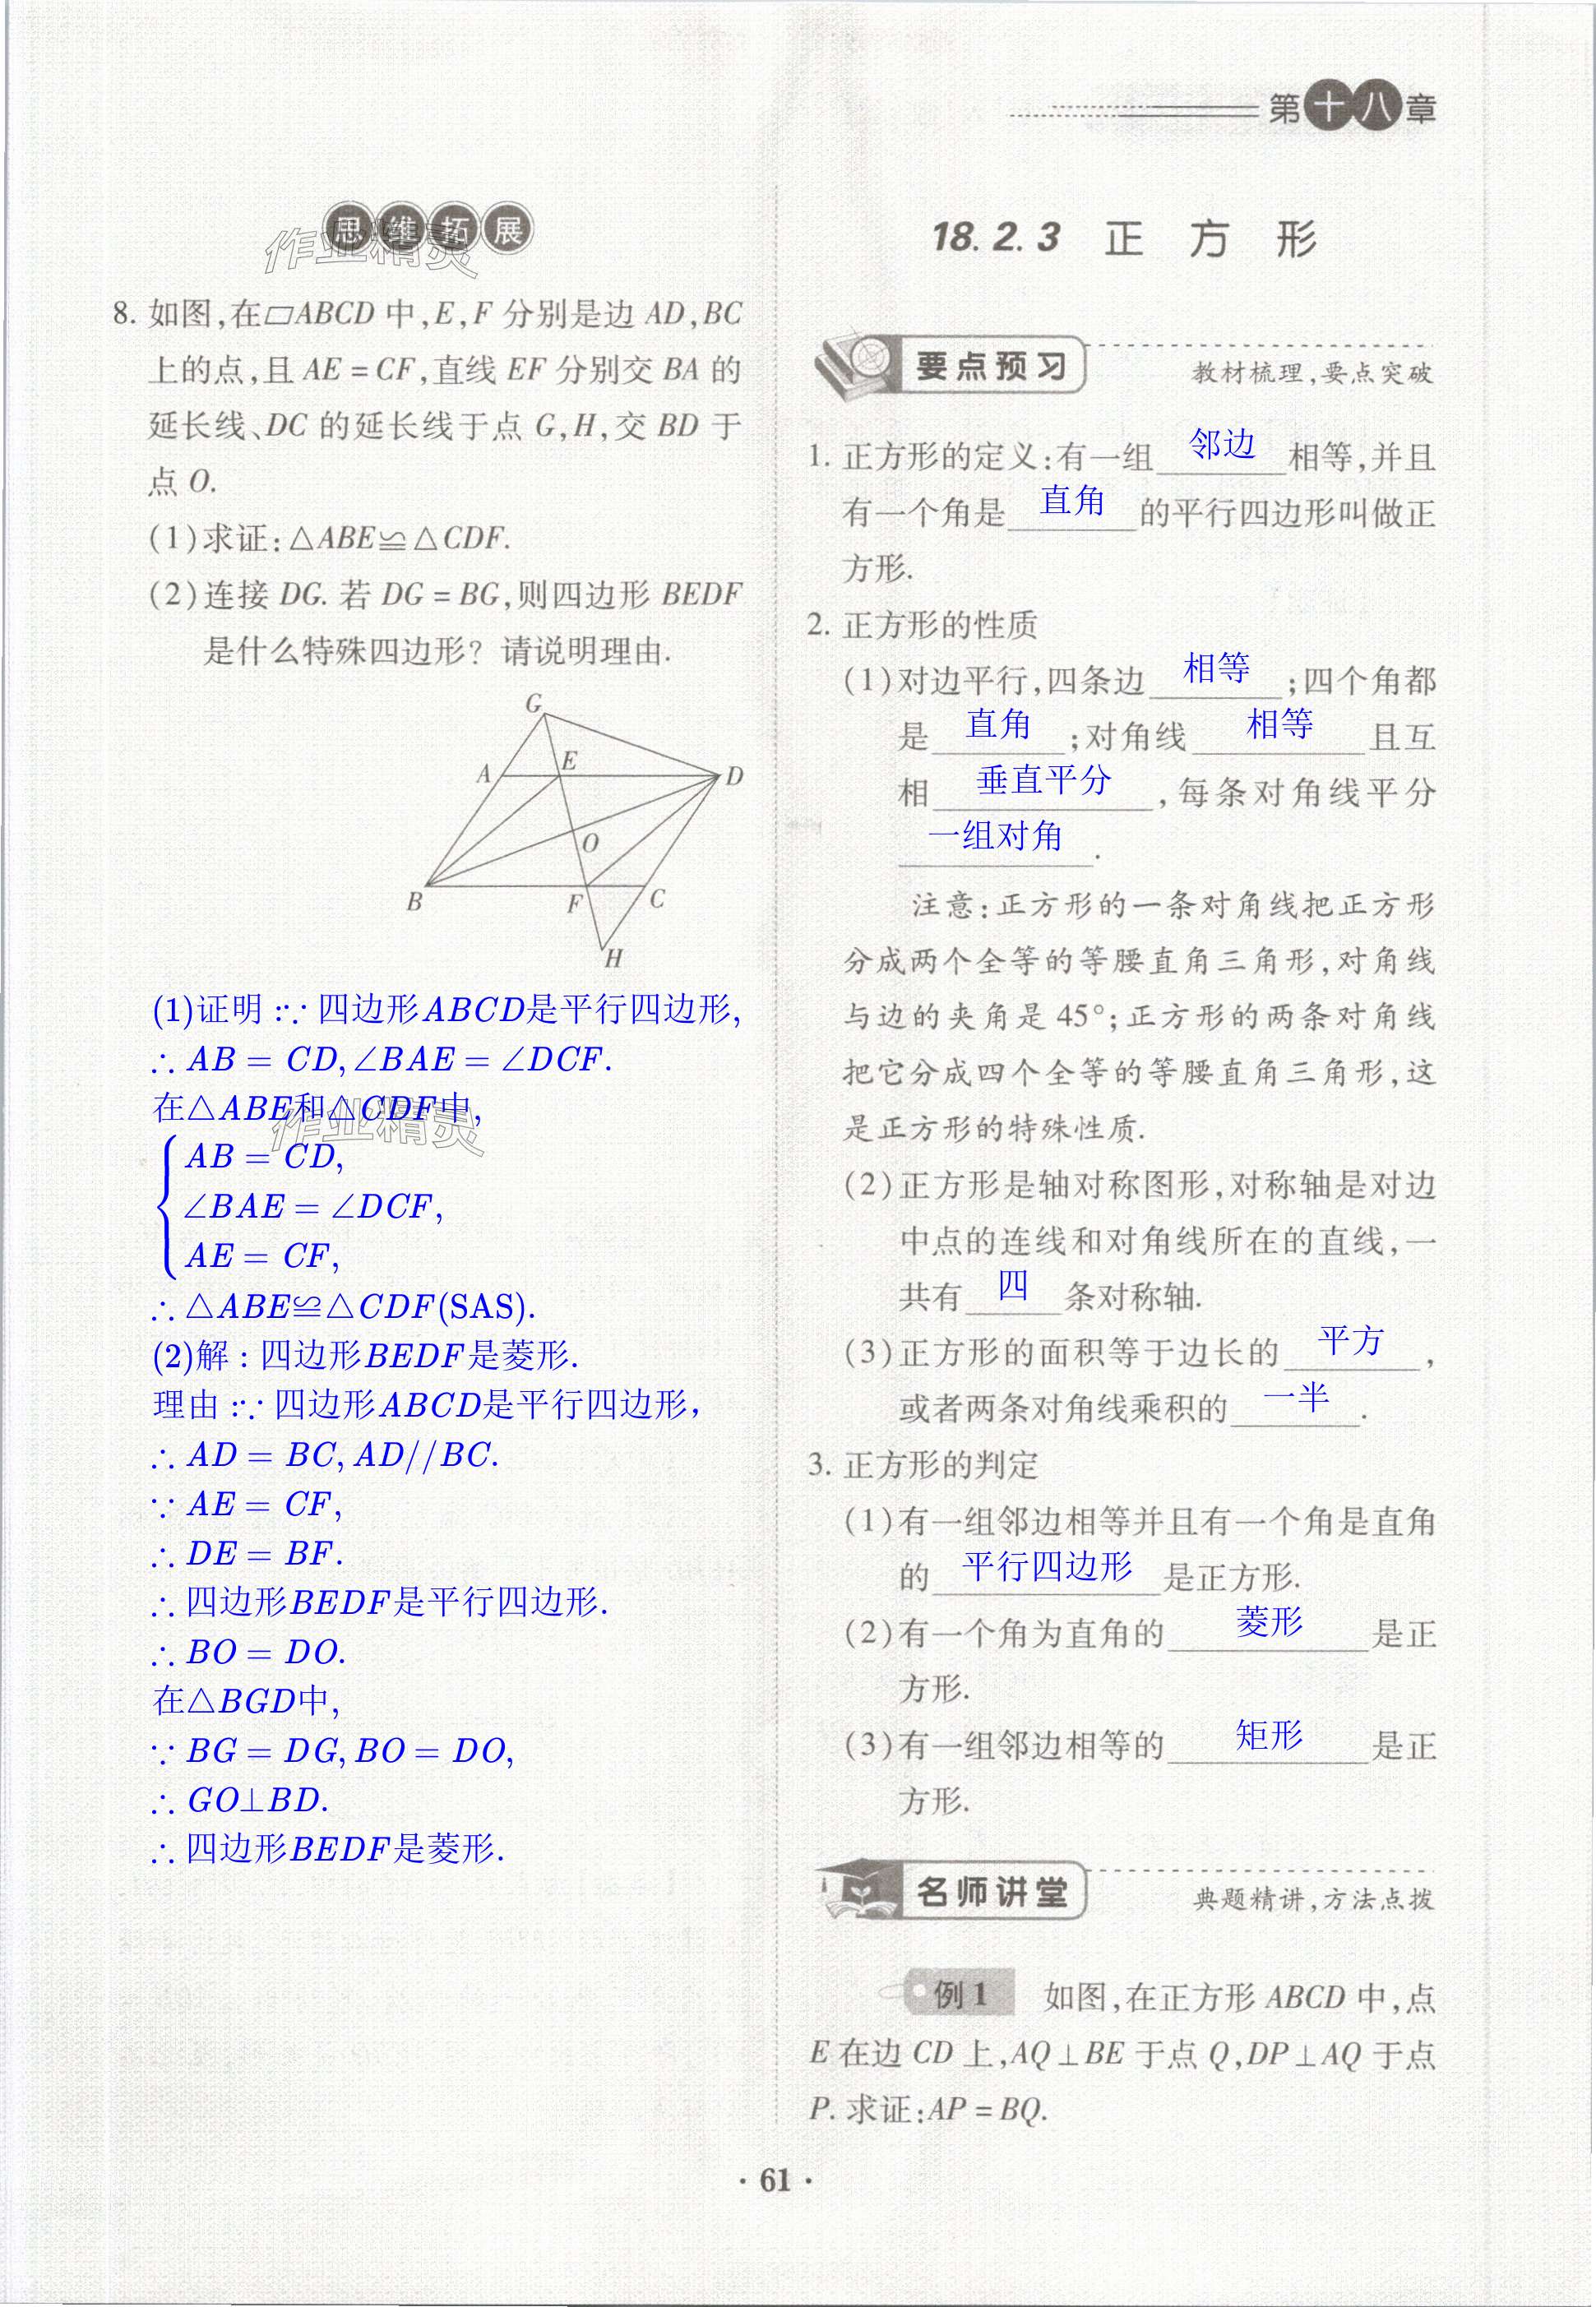 第十八章
思维拓展
作业精灵
8. 如图,在▱ABCD 中,E,F 分别是边 AD,BC
上的点,且 AE = CF,直线 EF 分别交 BA 的
延长线、DC 的延长线于点 G,H,交 BD 于
点 O.
(1)求证:△ABE≌△CDF.
(2)连接 DG. 若 DG = BG,则四边形 BEDF
是什么特殊四边形? 请说明理由.
G
A
E
D
O
B
F
C
H
(1)证明:∵四边形ABCD是平行四边形,
∴AB = CD,∠BAE = ∠DCF.
在△ABE和△CDF中,
作业精灵
AB = CD,
∠BAE = ∠DCF,
AE = CF,
∴△ABE≌△CDF(SAS).
(2)解:四边形BEDF是菱形.
理由:∵四边形ABCD是平行四边形,
∴AD = BC,AD//BC.
∵AE = CF,
∴DE = BF.
∴四边形BEDF是平行四边形.
∴BO = DO.
在△BGD中,
∵BG = DG,BO = DO,
∴GO⊥BD.
∴四边形BEDF是菱形.
18.2.3 正方形
要点预习
教材梳理,要点突破
1. 正方形的定义:有一组 邻边 相等,并且
有一个角是 直角 的平行四边形叫做正
方形.
2. 正方形的性质
(1)对边平行,四条边 相等 ;四个角都
是 直角 ;对角线 相等 且互
相 垂直平分 ,每条对角线平分
一组对角 .
注意:正方形的一条对角线把正方形
分成两个全等的等腰直角三角形,对角线
与边的夹角是 45°;正方形的两条对角线
把它分成四个全等的等腰直角三角形,这
是正方形的特殊性质.
(2)正方形是轴对称图形,对称轴是对边
中点的连线和对角线所在的直线,一
共有 四 条对称轴.
(3)正方形的面积等于边长的 平方 ,
或者两条对角线乘积的 一半 .
3. 正方形的判定
(1)有一组邻边相等并且有一个角是直角
的 平行四边形 是正方形.
(2)有一个角为直角的 菱形 是正
方形.
(3)有一组邻边相等的 矩形 是正
方形.
名师讲堂
典题精讲,方法点拨
例1 如图,在正方形 ABCD 中,点
E 在边 CD 上,AQ⊥BE 于点 Q,DP⊥AQ 于点
P. 求证:AP = BQ.
· 61 ·